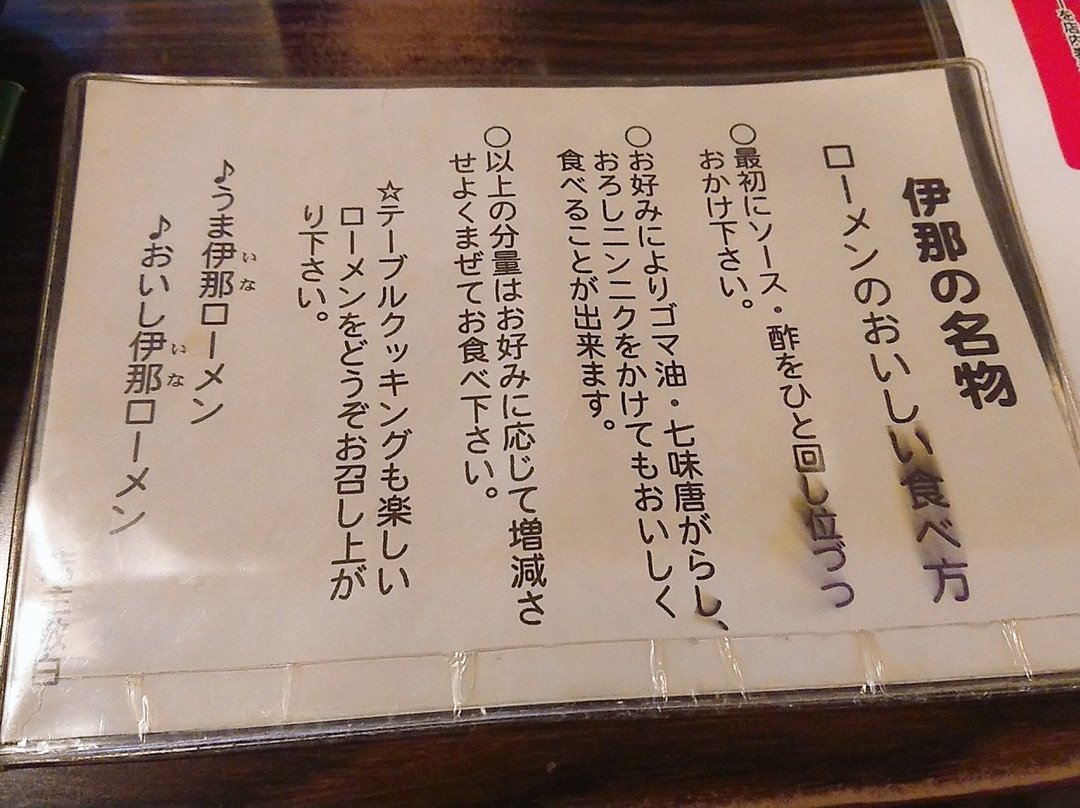 伊那の名物
ローメンのおいしい食べ方
○最初にソース・酢をひと回し位づつ
おかけ下さい。
○お好みによりゴマ油・七味唐がらし、
おろしニンニクをかけてもおいしく
食べることが出来ます。
○以上の分量はお好みに応じて増減さ
せよくまぜてお食べ下さい。
☆テーブルクッキングも楽しい
ローメンをどうぞお召し上が
り下さい。
♪うま伊那ローメン
いな
♪おいし伊那ローメン
いな